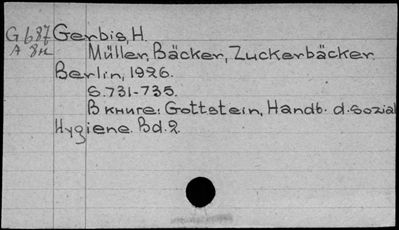 G 687 Gerbis, H.
A 8n Müller, Bäcker, Zuckerbäcker.
Berlin, 1926.
S. 731-735.
В книге: Gottstein, Handb. d. sozial
Hygiene. Bd. 2.